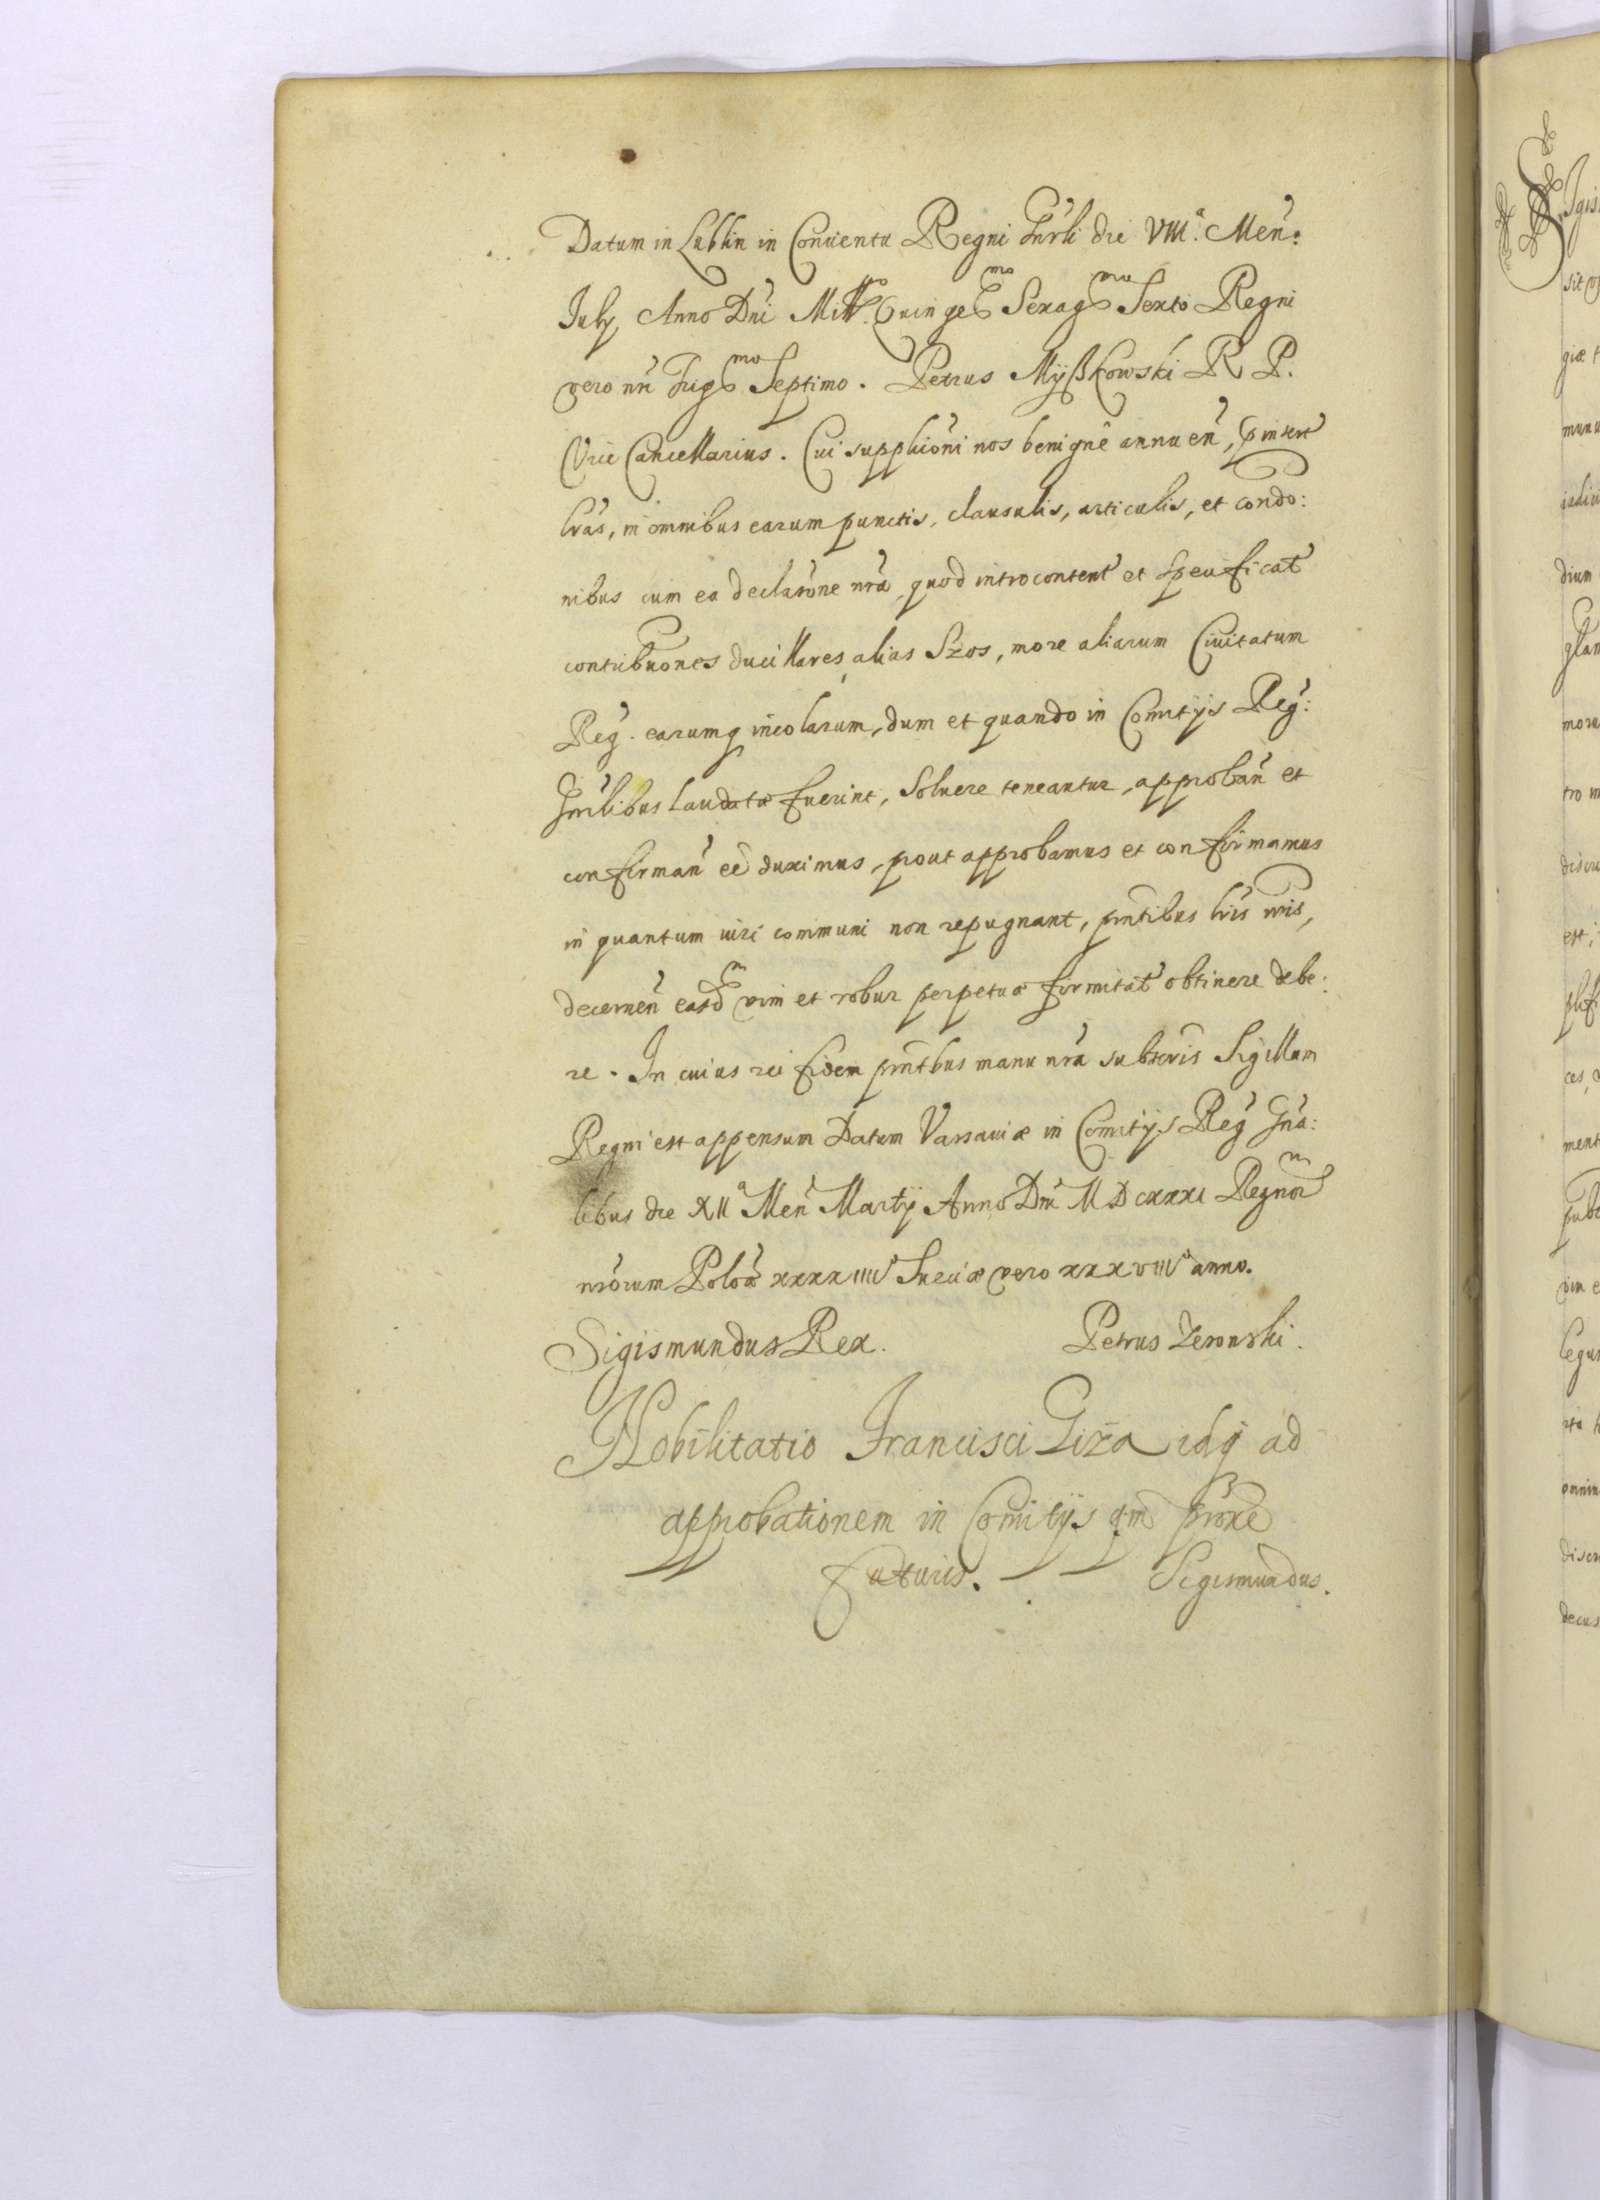 Datum in Lublin in Conuentu Regni Gnrli die VIIIa. Men:
July Anno Dni Millo. Quinge mo Sexag mo Sexto Regni
vero nri Trig mo Septimo. Petrus Myßkowski R P.
Vice Cancellarius. Cui supplicōni nos benignè annuen̄, pinsert
lrās, in omnibus earum punctis, clausulis, articulis, et condo:
nibus cum ea declarōne nrā, quod introcontent et specificat
contribuōnes ducillares, alias Szos, more aliarum Ciuitatum
Reg. earumq incolarum, dum et quando in Comitijs Reg:
Gnrlibus laudatæ fuerint, soluere teneantur, approban̄ et
confirman̄ eē duximus, prout approbamus et confirmamus
in quantum iuri communi non repugnant, pn̄tibus lrīs nrīs,
decernen̄ easd m vim et robur perpetuæ firmitat obtinere debe:
re. In cuius rei fidem pn̄tibus manu nrā subscris Sigillum
Regni est appensum Datum Varsauiæ in Comitijs Reg Gnā:
libus die XIIa Men Martij Anno Dni MDCXXXI Regnor
nrōrum Polon xxxxiiii Sueciæ vero xxxviiio anno.
Sigismundus Rex. Petrus Zeronski.
Nobilitatio Francisci Giża idq ad
approbationem in Comitijs qm̄ proxē
futuris. Sigismundus.